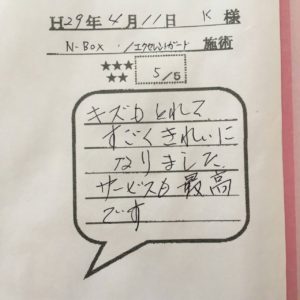 H29年4月11日 K 様
N-BOX /エクセレントガード 施術
★★★
★★
5/5
キズもとれて
すごくきれいに
なりました
サービスも最高
です